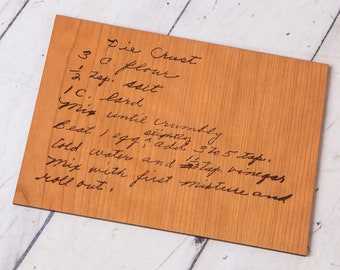 Pie Crust
3 C flour
1/2 tsp. salt
1 C. lard
Mix until crumbly
Beat 1 egg slightly add 3 to 5 tsp.
Cold water and 1/2 tsp vinegar
Mix with first mixture and
roll out.